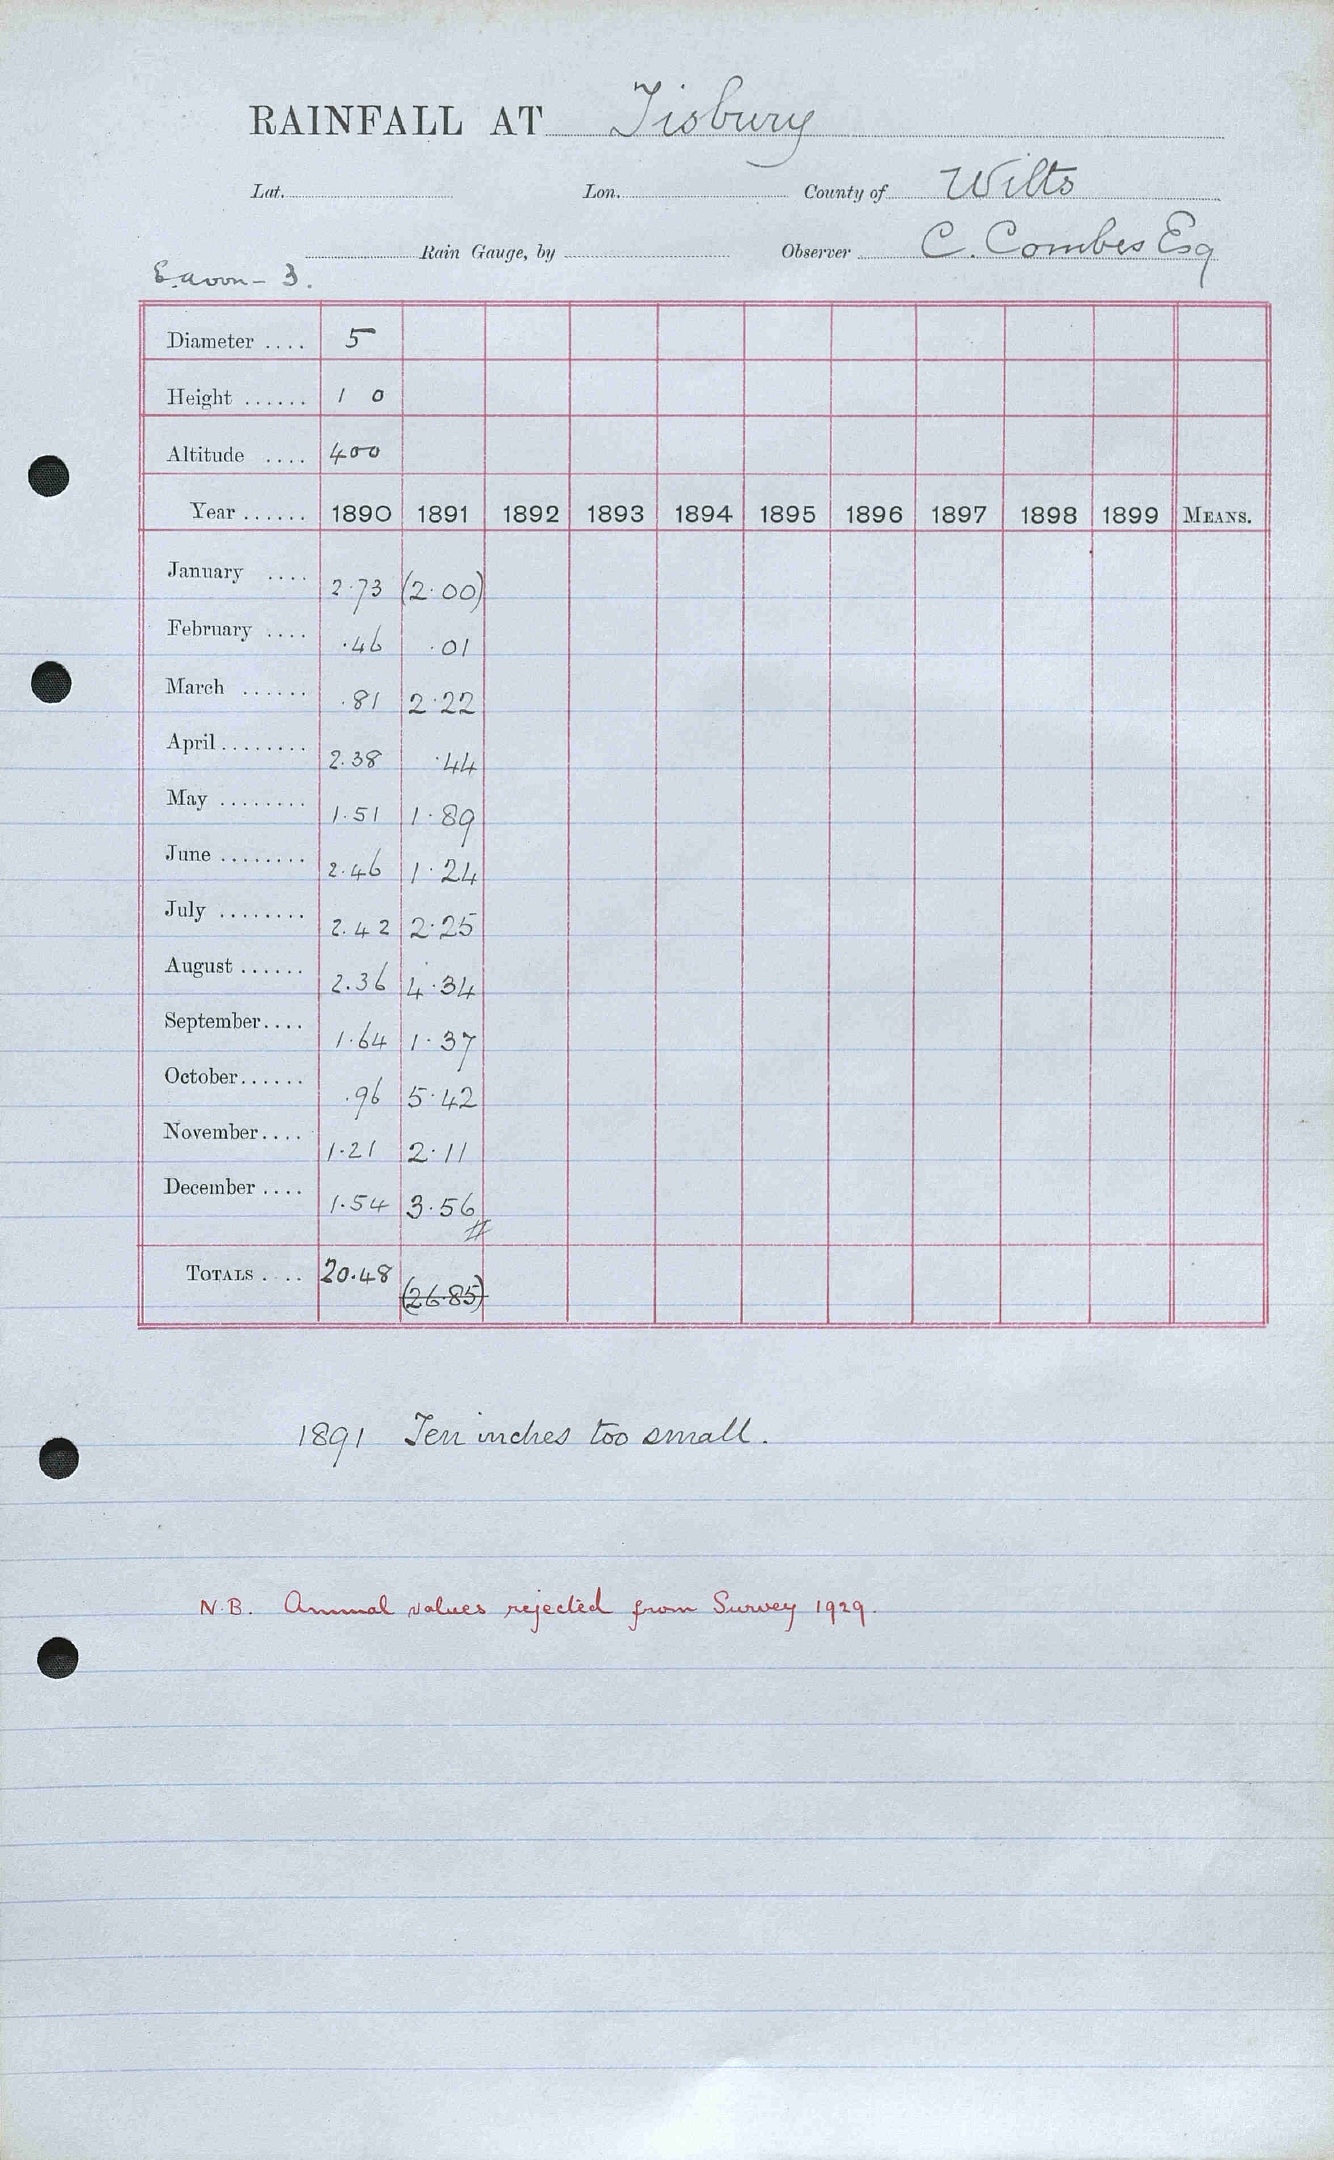 RAINFALL AT Tisbury
Lat. Lon. County of Wilts
Rain Gauge, by Observer C. Combes Esq
E. Avon - 3.
Diameter .... 5
Height ...... 1 0
Altitude .... 400
Year ...... 1890 1891 1892 1893 1894 1895 1896 1897 1898 1899 MEANS.
January .... 2.73 (2.00)
February .... .46 .01
March ...... .81 2.22
April ........ 2.38 .44
May ........ 1.51 1.89
June ........ 2.46 1.24
July ........ 2.42 2.25
August ...... 2.36 4.34
September.... 1.64 1.37
October...... .96 5.42
November.... 1.21 2.11
December .... 1.54 3.56
#
TOTALS .... 20.48 (26.85)
1891 Ten inches too small.
N.B. Annual values rejected from Survey 1929.